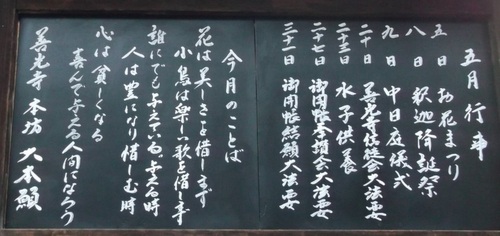 五月行事
五日 お花まつり
八日 釈迦降誕祭
九日 中日庭儀式
二十日 善光寺伝燈会大法要
二十三日 水子供養
二十七日 御開帳奉讃会大法要
三十一日 御開帳結願大法要
今月のことば
花は美しさを惜しまず
小鳥は楽しい歌を惜しまず
誰にでも与えている。与える時
人は豊になり惜しむ時
心は貧しくなる
喜んで与える人間になろう
善光寺 本坊 大本願